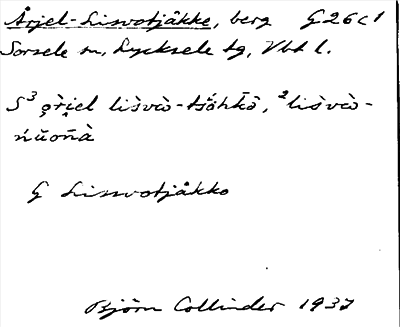 Årjel-Lisvotjåkke, berg G26c1
Sorsele sn, Lycksele tg, Vbt l.
S³ o̭rjel lisvɷ̀-tšåhkɷ̀, ²lisvɷ̀-
ńŭońà
G Lisvotjåkko
Björn Collinder 1937